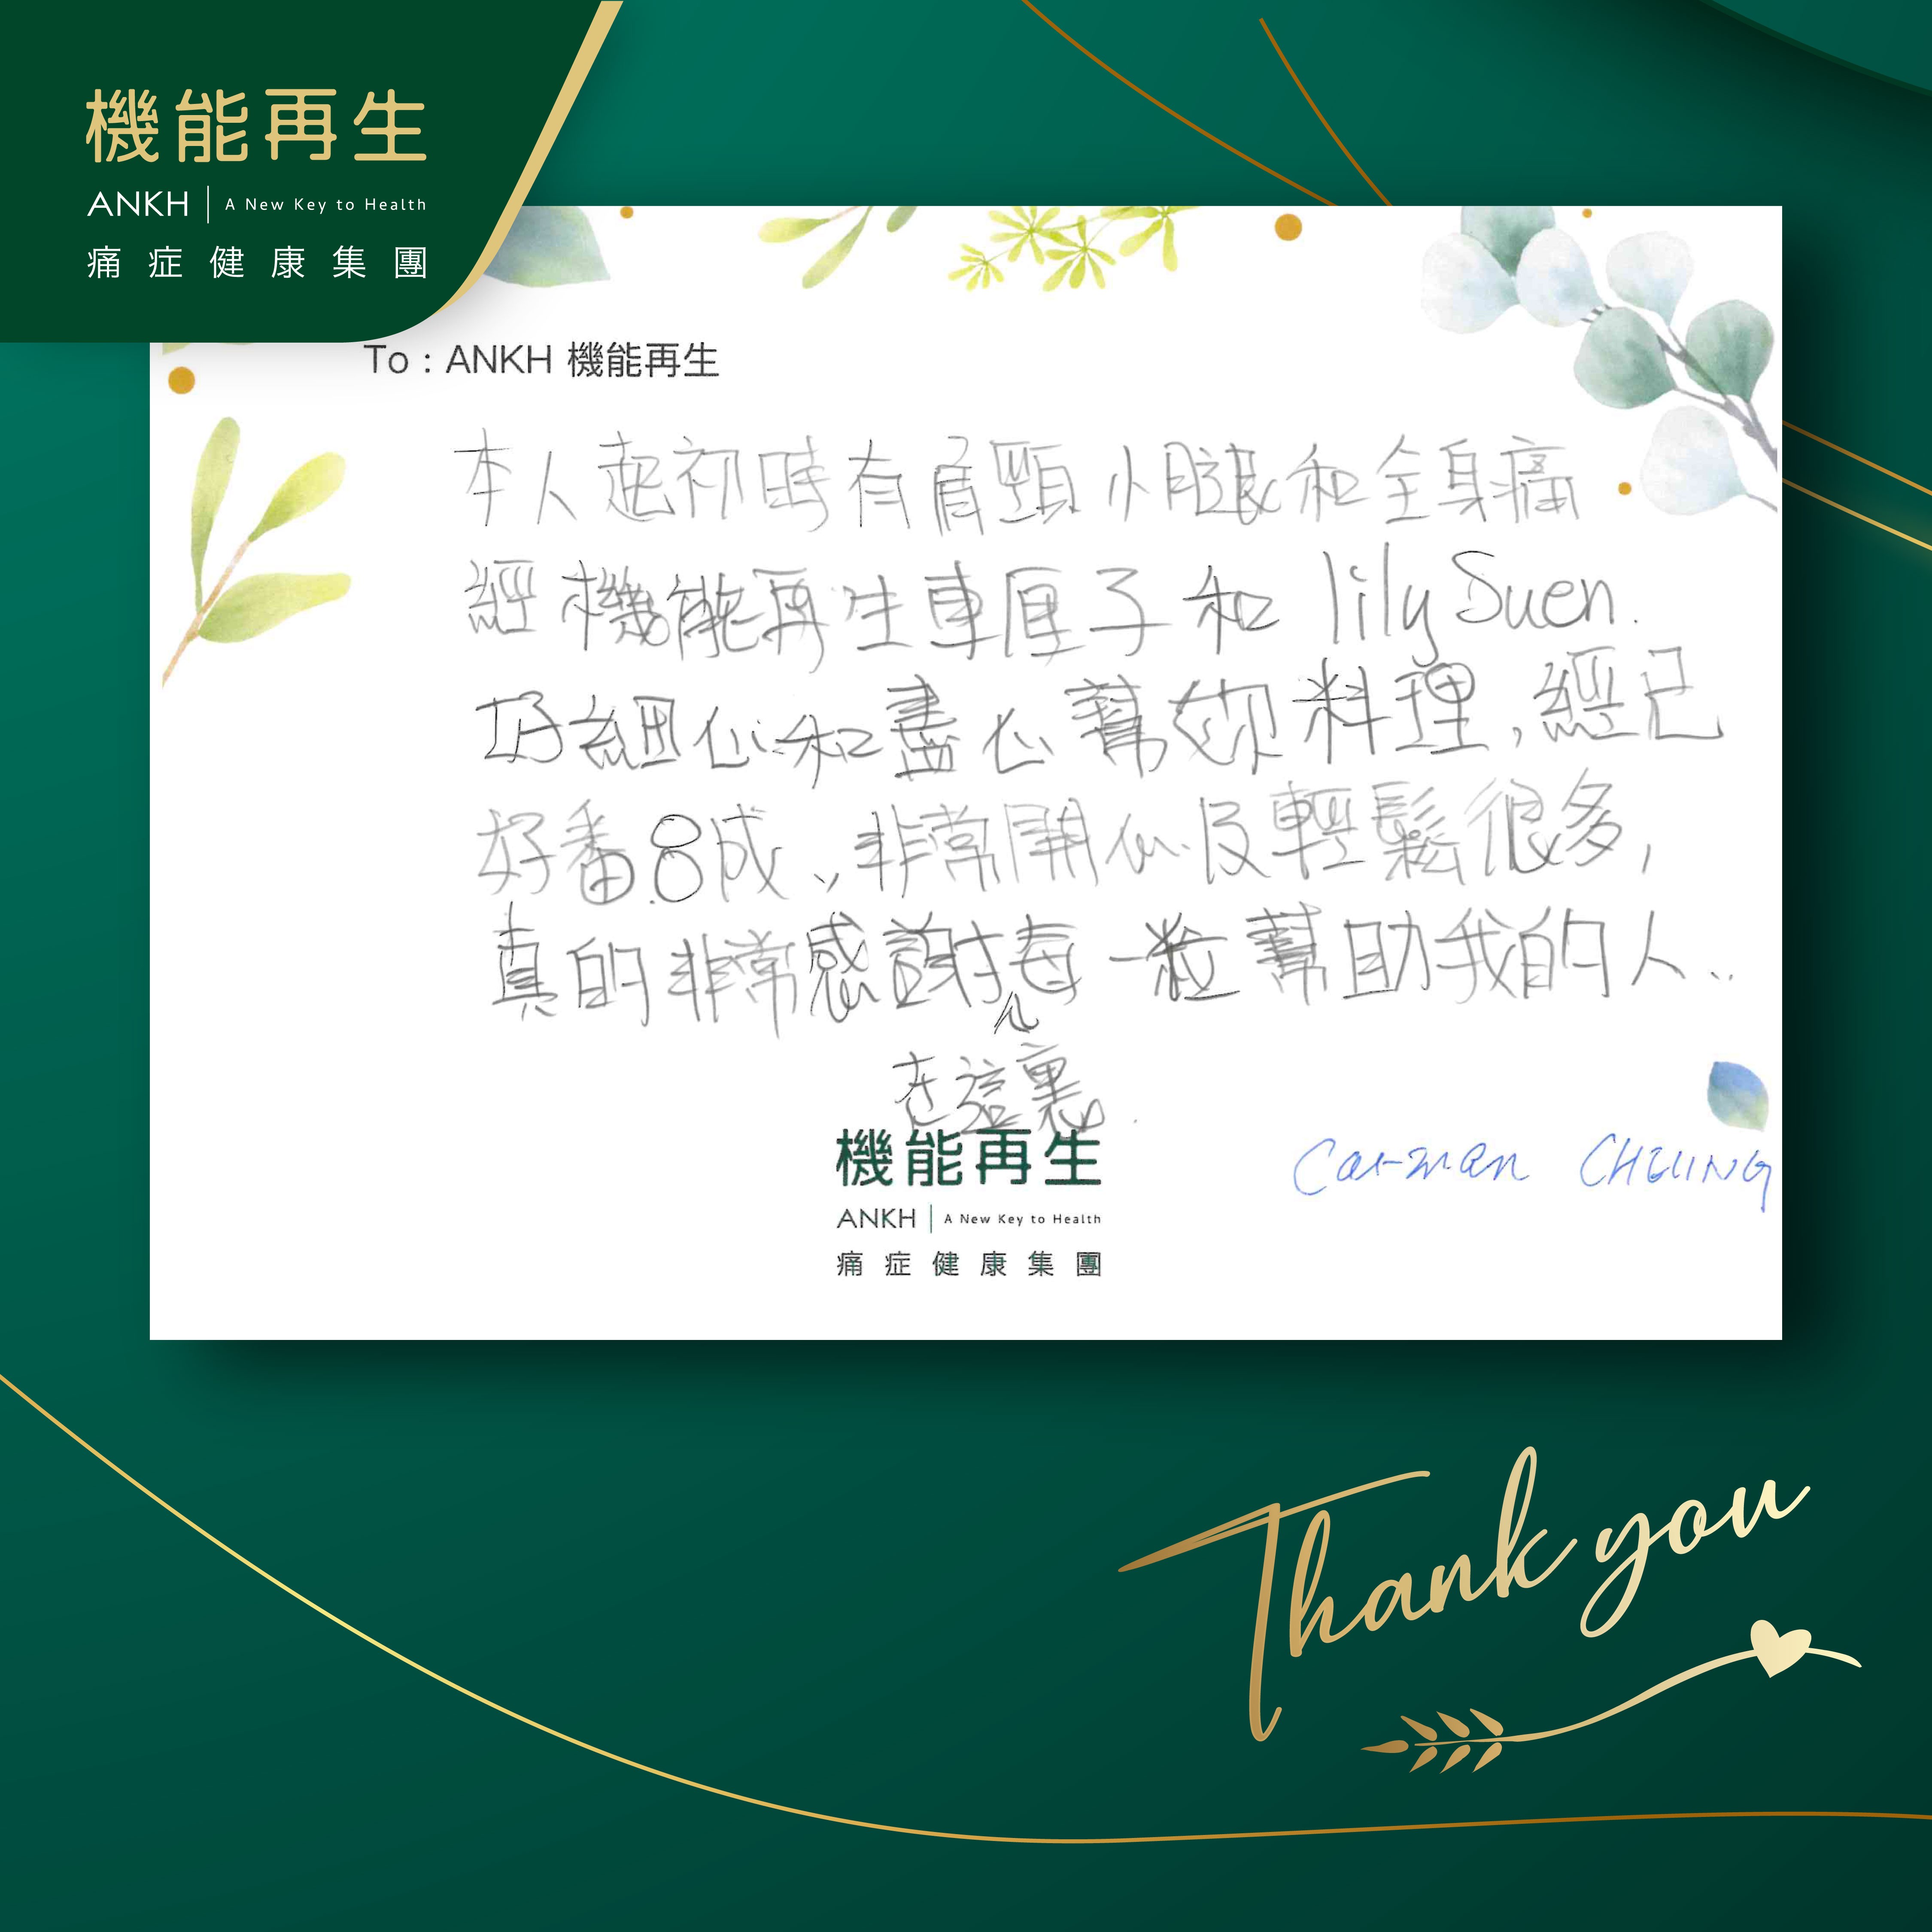 機能再生
ANKH | A New Key to Health
痛症健康集團
To : ANKH 機能再生
本人起初時有肩頸小腿和全身痛
經機能再生車厘子和 lily Suen.
好細心和盡心幫妳料理,經已
好番8成、非常開心及輕鬆很多,
真的非常感謝每一粒幫助我的人..
在這裏
機能再生
ANKH | A New Key to Health
痛症健康集團
Carman CHEUNG
Thank you